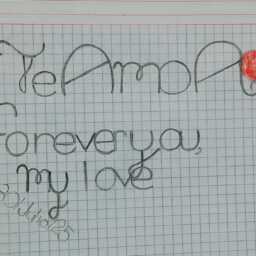 Te Amo A
Forever you,
my love